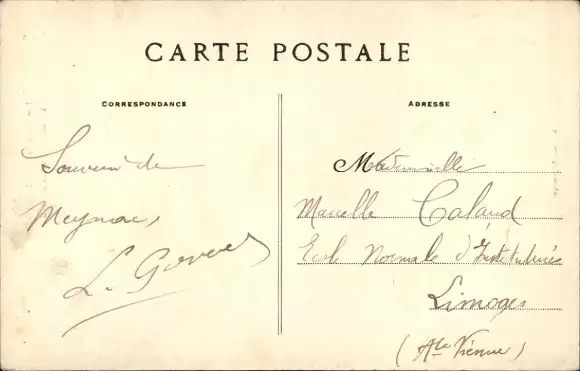 CARTE POSTALE
CORRESPONDANCE
Souvenir de
Meymac,
L.
ADRESSE
Mademoiselle
Marcelle Calaud
Ecole Normale d'Institutrices
Limoges
(Hte Vienne)